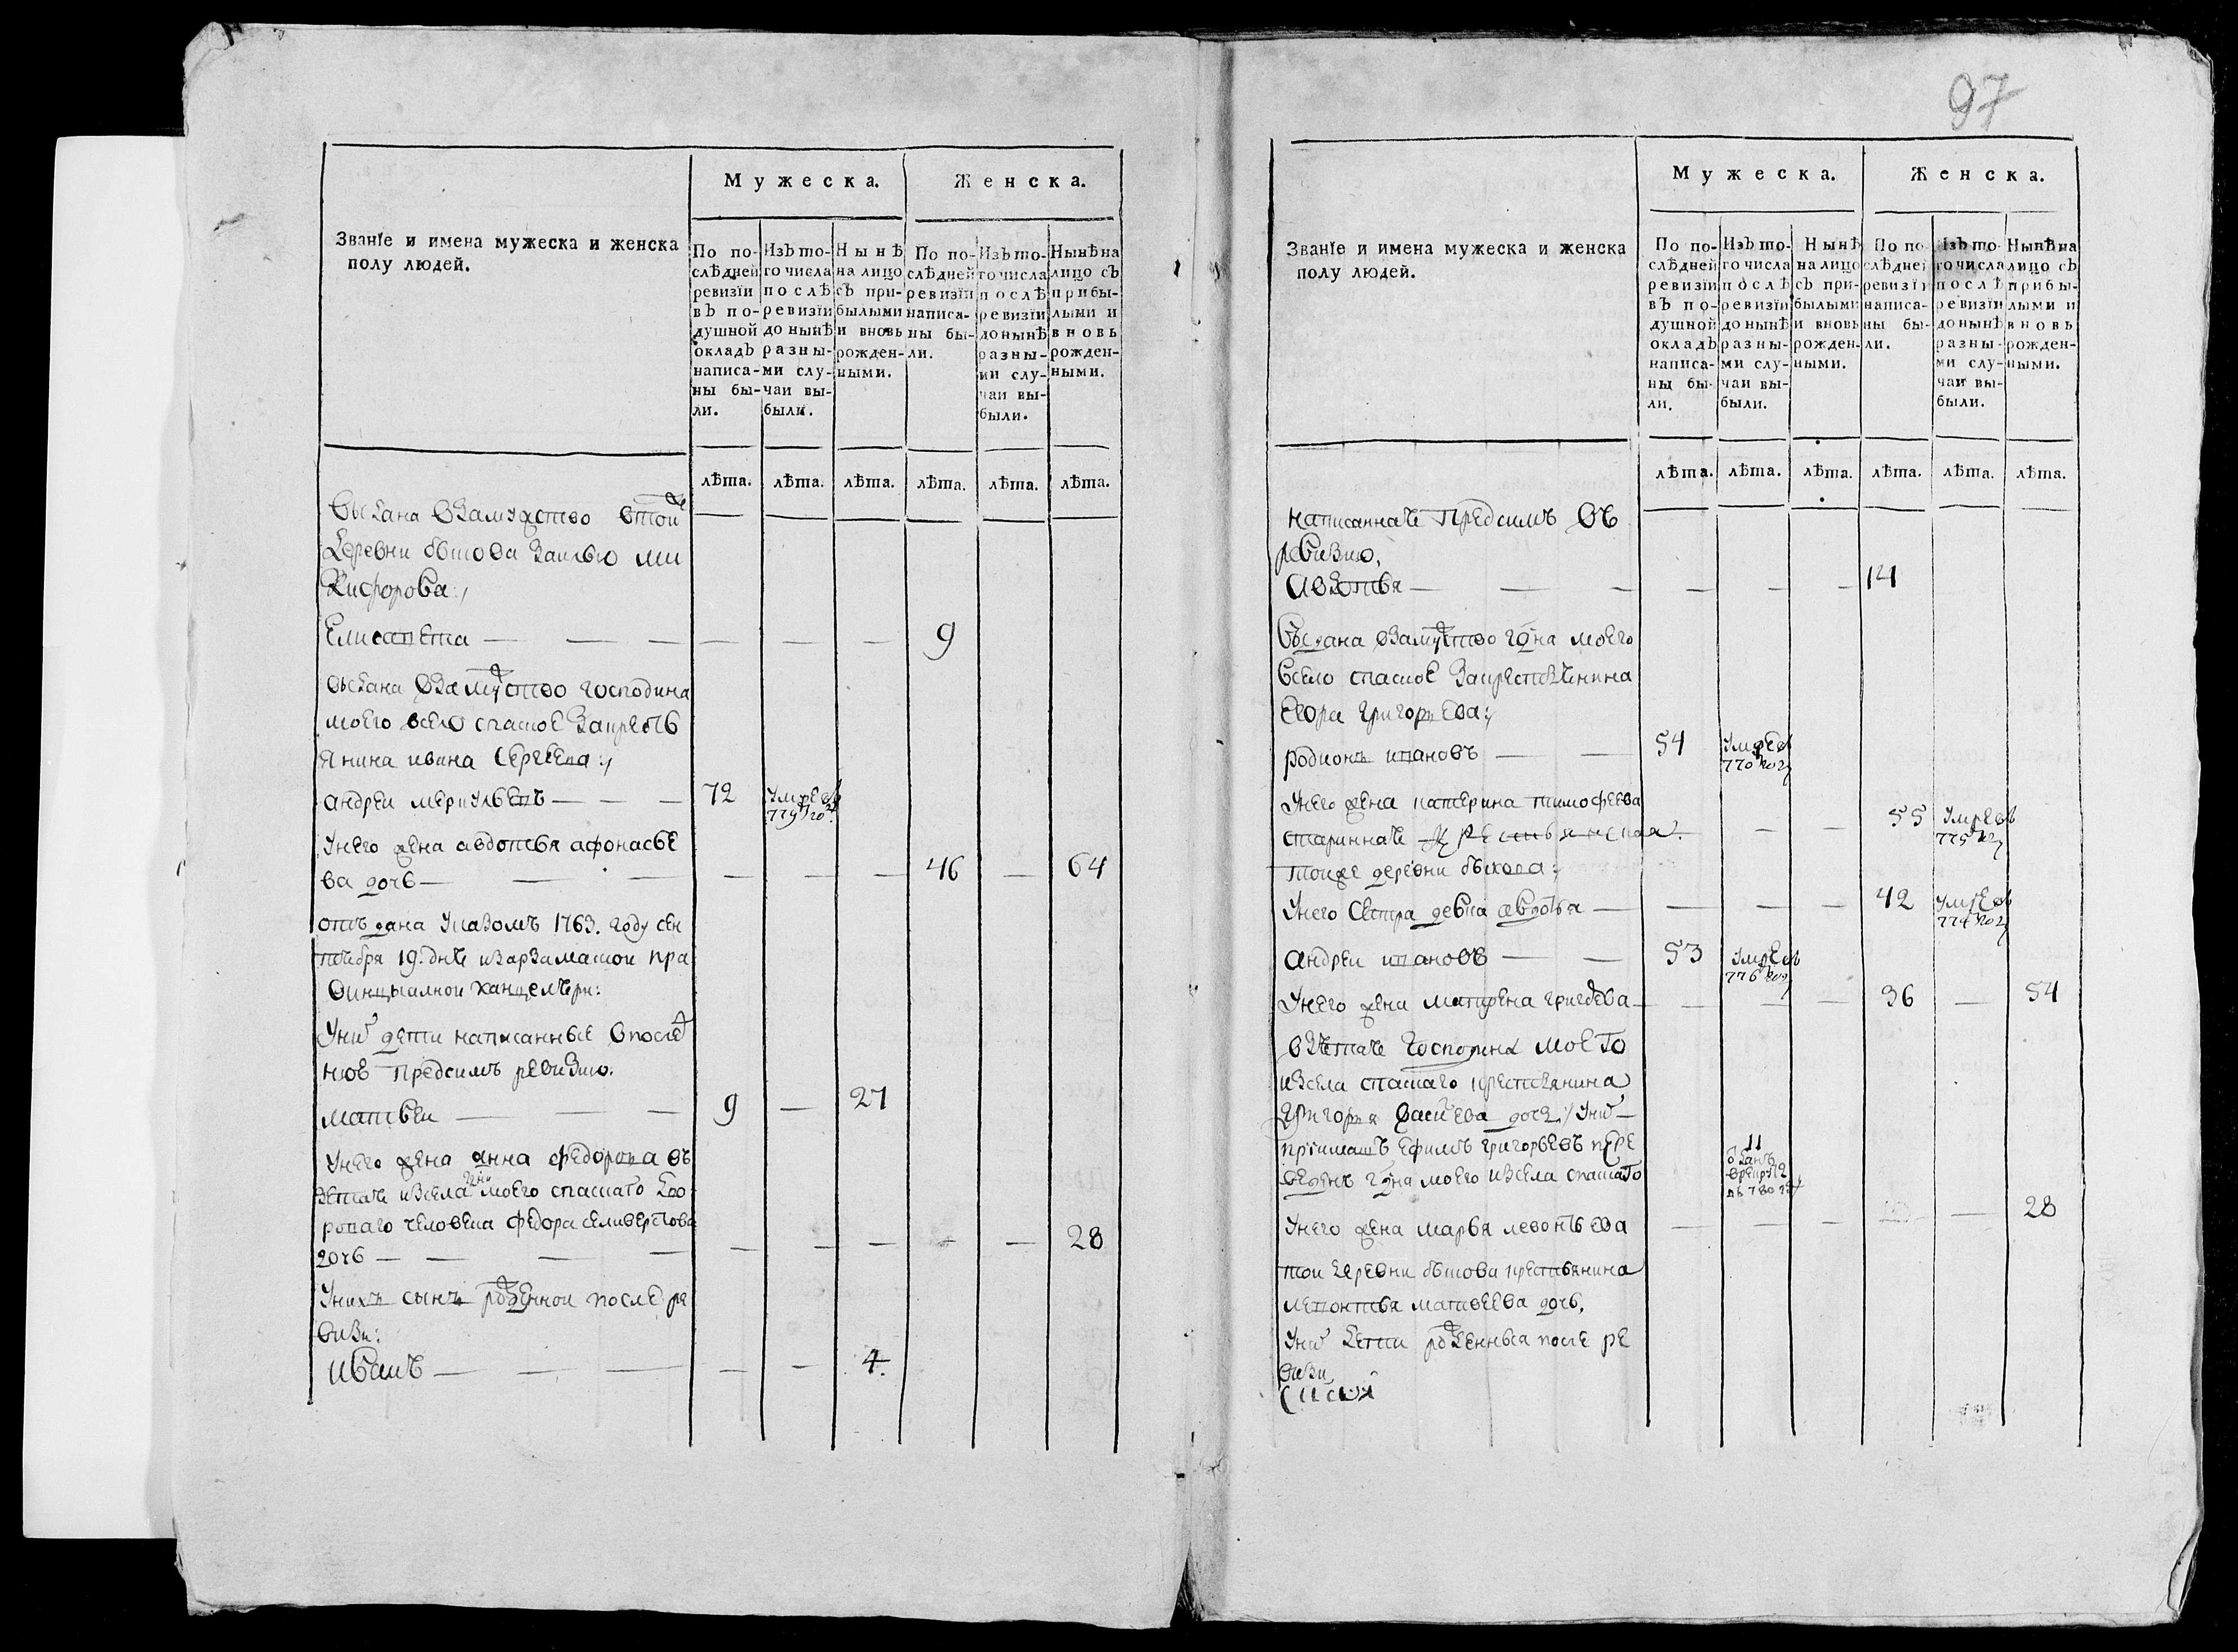 97
Мужеска. Женска.
Званїе и имена мужеска и женска
полу людей.
По по-слѣдней ревизїи въ по-душной окладъ написа-ны бы-ли.
Изъ то-го числа послѣ ревизїи до нынѣ разны-ми слу-чаи вы-были.
Нынѣ на лицо съ при-былыми и вновь рожден-ными.
По по-слѣдней ревизїи написа-ны бы-ли.
Изъ то-го числа послѣ ревизїи до нынѣ разны-ми слу-чаи вы-были.
Нынѣ на лицо съ прибы-лыми и вновь рожден-ными.
лѣта. лѣта. лѣта. лѣта. лѣта. лѣта.
выдана взамужство втой
деревни
Кифорова:/
Елисапета — — — — — — 9
выдана взамуство господина
моего всело спаское закресть
янина ивана Сергеева:/
андреи меркульевъ — — — 72 умре въ 779 го
унего жена авдотья афонасье
ва дочь — — — — — — 46 — 64
отъдана указомъ 1763. году сен
тебря 19. дня изарзамаской пра
винцыалной канцелери:
Уних дети написанные впослед
нюю предсимъ ревизию.
матвеи — — — 9 — 27
унего жена анна федорова въ
зетая изсела гдна моего спаскаго дво
роваго человека федора селиверстова
дочь — — — — — — — — — 28
Унихъ сынъ рожденной после ре
визи:
иванъ — — — — — 4.
Мужеска. Женска.
Званїе и имена мужеска и женска
полу людей.
По по-слѣдней ревизїи въ по-душной окладъ написа-ны бы-ли.
Изъ то-го числа послѣ ревизїи до нынѣ разны-ми слу-чаи вы-были.
Нынѣ на лицо съ при-былыми и вновь рожден-ными.
По по-слѣдней ревизїи написа-ны бы-ли.
Изъ то-го числа послѣ ревизїи до нынѣ разны-ми слу-чаи вы-были.
Нынѣ на лицо съ прибы-лыми и вновь рожден-ными.
лѣта. лѣта. лѣта. лѣта. лѣта. лѣта.
написанная предсимъ въ
ревизию,
авдотья — — — — — — 14
выдана взамуство гдна моего
всело спаское закрестьянина
егора григорьева:/
родионъ ивановъ — — 54 умре въ 770 году
унего жена катерина тимофеева
старинная крестьянская — — 55 умре въ 775 году
тойже деревни
Унего Сестра девка авдотья — — — — 42 умре въ 774 году
андреи ивановъ — — 53 умре въ 776 году
Унего жена матрена григорева — — — — 36 — 54
взятая господина моего
изсела спаскаго крестьянина
Григорья васильева дочь:/ Уних
приимашъ ефимъ григорьевъ пере
веденъ гдна моего изсела спаскаго 11 отданъ врекруты въ 780 году
Унего жена марья левонтьева — — — — 28
той деревни крестьянина
левонтья матвеева дочь,
Уних дети рожденныя после ре
визи,